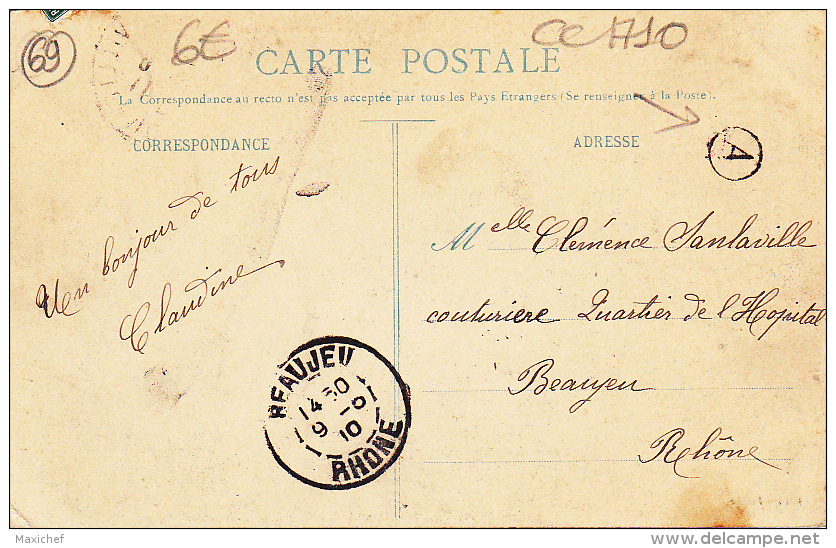 69
6€
CC 1710
CARTE POSTALE
La Correspondance au recto n'est pas acceptée par tous les Pays Etrangers (Se renseigner à la Poste).
CORRESPONDANCE
ADRESSE
A
Un bonjour de tous
Claudine
Melle Clémence Sanlaville
couturiere Quartier de l'Hopital
Beaujeu
Rhône
BEAUJEU
RHONE
Maxichef
www.delcampe.net